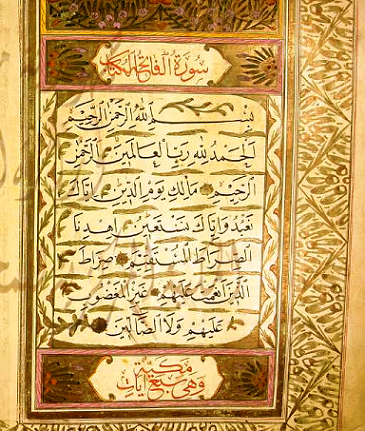 سورة الفاتحة الكتاب
بِسْمِ اللهِ الرَّحْمٰنِ الرَّحِيْمِ
اَلْحَمْدُ لِلّٰهِ رَبِّ الْعَالَمِيْنَ الرَّحْمٰنِ
الرَّحِيْمِ مَالِكِ يَوْمِ الدِّيْنِ اِيَّاكَ
نَعْبُدُ وَاِيَّاكَ نَسْتَعِيْنُ اِهْدِنَا
الصِّرَاطَ الْمُسْتَقِيْمَ صِرَاطَ
الَّذِيْنَ اَنْعَمْتَ عَلَيْهِمْ غَيْرِ الْمَغْضُوْبِ
عَلَيْهِمْ وَلَا الضَّالِّيْنَ
مكية
وهي سبع آيات